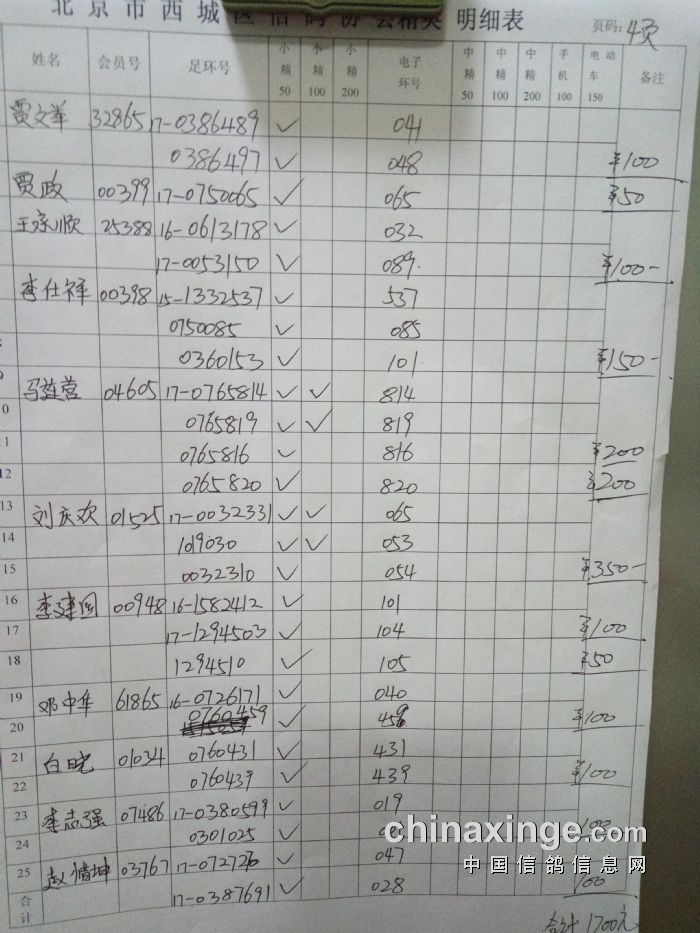 北京市西城区信鸽协会精英 明细表
页码: 4页
姓名 会员号 足环号 小精50 小精100 小精200 电子环号 中精50 中精100 中精200 手机100 电动车150 备注
贾文革 32865 17-0386489 ✓ 041
0386497 ✓ 048 ¥100
贾政 00399 17-0750065 ✓ 065 ¥50
25388 16-0613178 ✓ 032
17-0053150 ✓ 089. ¥100-
李仕祥 00398 15-1332537 ✓ 537
0750085 ✓ 085
8 0360153 ✓ 101. ¥150-
9 马益营 04605 17-0765814 ✓ ✓ 814
10 0765819 ✓ ✓ 819
11 0765816 ✓ 816 ¥200
12 0765820 ✓ 820 ¥200
13 刘庆欢 01525 17-0032331 ✓ ✓ 065
14 1019030 ✓ ✓ 053
15 0032310 ✓ 054 ¥350-
16 李建国 00948 16-1582412 ✓ 101
17 17-1294503 ✓ 104 ¥100
18 1294510 ✓ 105 ¥50
19 邓中华 61865 16-0726171 ✓ 040
20 0760459 ✓ 459 ¥100
21 白晓 01034 0760431 ✓ 431
22 0760439 ✓ 439 ¥100
23 李志强 07486 17-0380599 ✓ 019
24 0301025 ✓ 100
25 赵情坤 03767 17-072726 ✓ 047
合计 17-0387691 ✓ 028 100
合计 1700元
chinaxinge.com
中国信鸽信息网